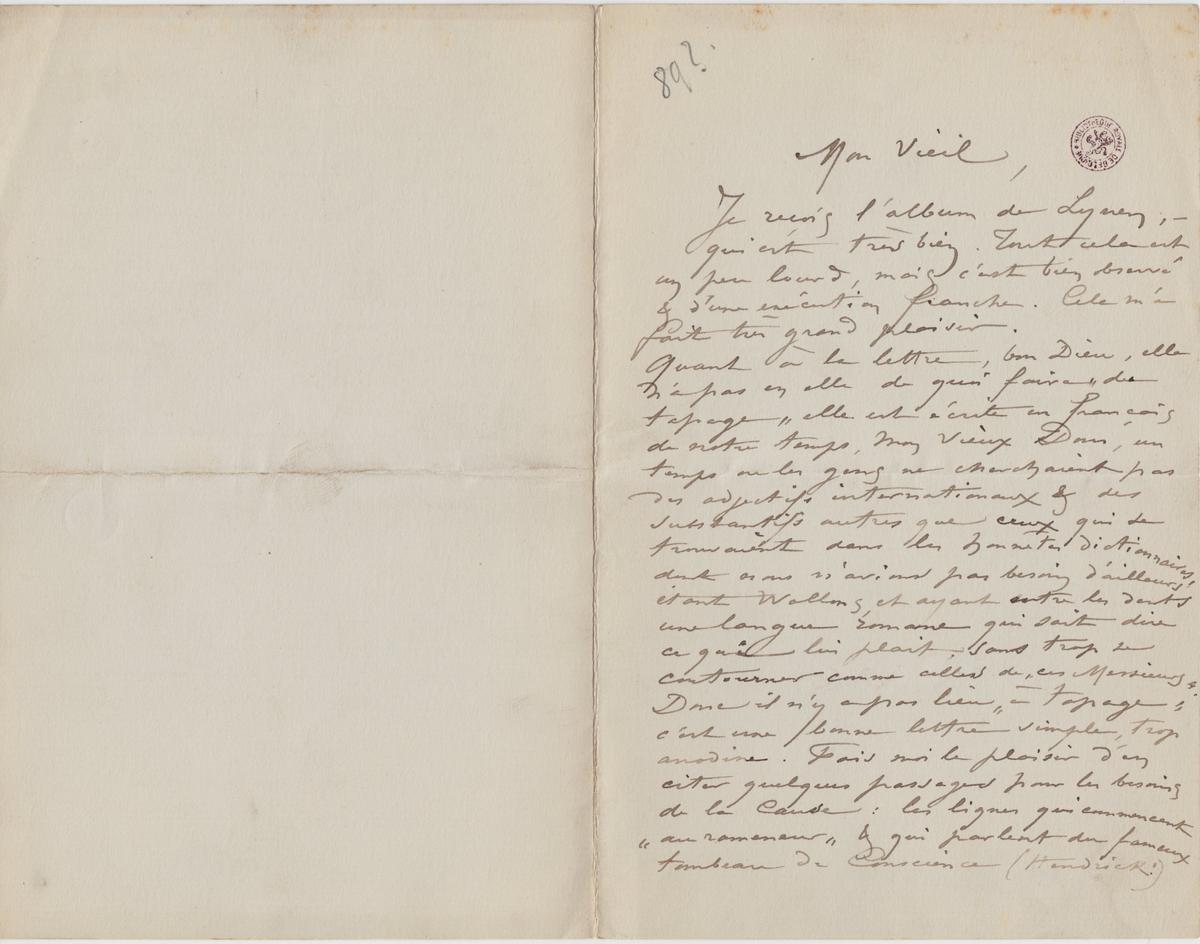 89?.
BIBLIOTHÈQUE ROYALE DE BELGIQUE
Mon Vieil,
Je reçois l'album de Lynen, –
qui est très bien. Tout cela est
un peu lourd, mais c'est bien observé
& d'une exécution franche. Cela m'a
fait très grand plaisir.
Quant à la lettre, bon Dieu, elle
n'a pas en elle de quoi faire „de
tapage„ elle est écrite en français
de notre temps, mon vieux Dom, un
temps ou les gens ne cherchaient pas
des adjectifs internationaux & des
substantifs autres que ceux qui se
trouvaient dans les honnêtes dictionnaires,
dont nous n'avions pas besoin d'ailleurs,
étant Wallons, et ayant entre les dents
une langue romane qui sait dire
ce qui lui plait, sans trop se
contourner comme celles de „ces Messieurs„.
Donc il n'y a pas lieu „à tapage„
c'est une bonne lettre simple, trop
anodine. Fais moi le plaisir d'en
citer quelques passages pour les besoins
de la Cause : les lignes qui commencent
„au rameneur„ & qui parlent du fameux
tombeau de Conscience (Hendrick!)